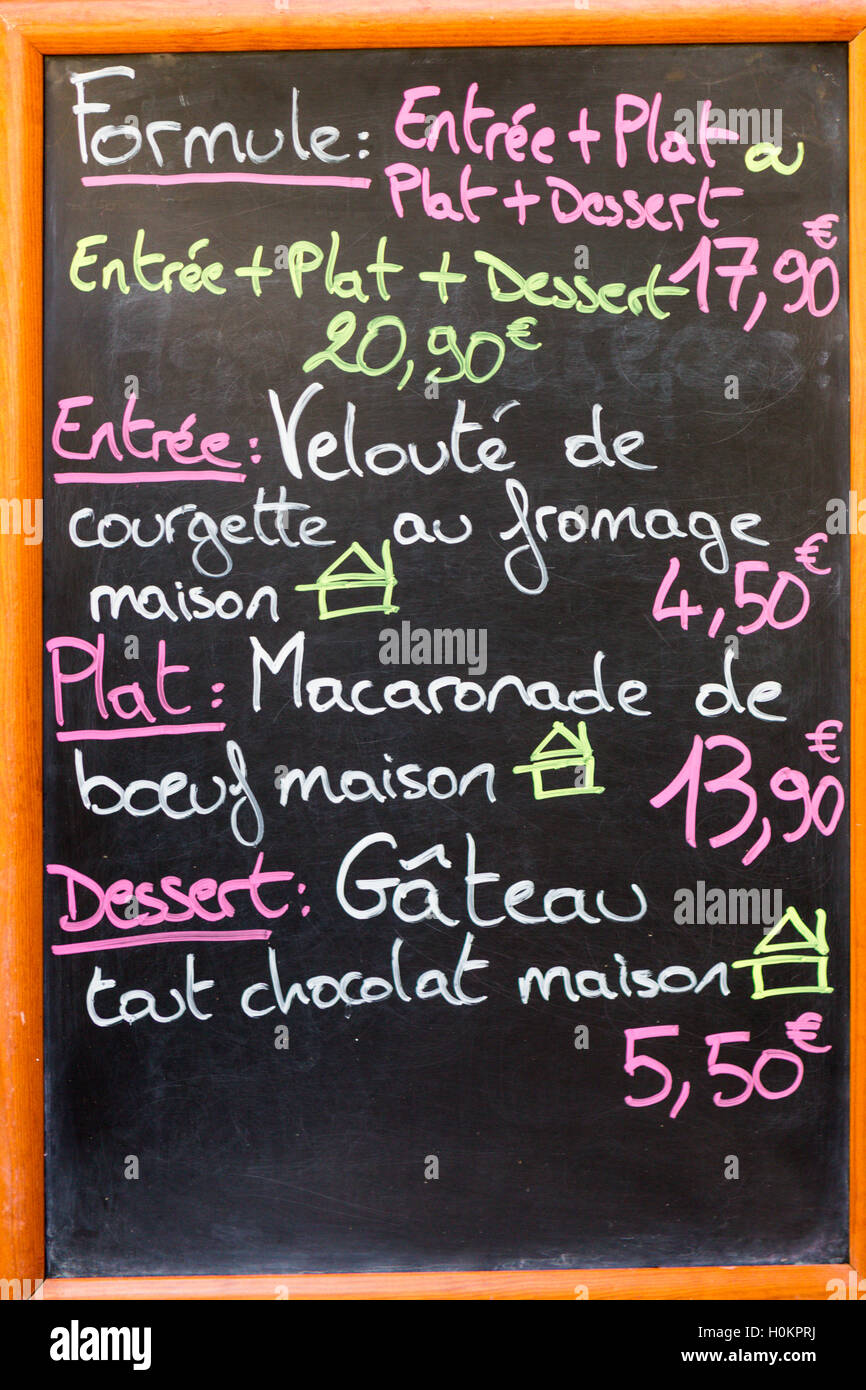 Formule: Entrée + Plat ou
Plat + Dessert
17,90€
Entrée + Plat + Dessert
20,90€
Entrée: Velouté de
courgette au fromage
maison 4,50€
Plat: Macaronade de
bœuf maison 13,90€
Dessert: Gâteau
tout chocolat maison
5,50€
alamy
Image ID: H0KPRJ
www.alamy.com